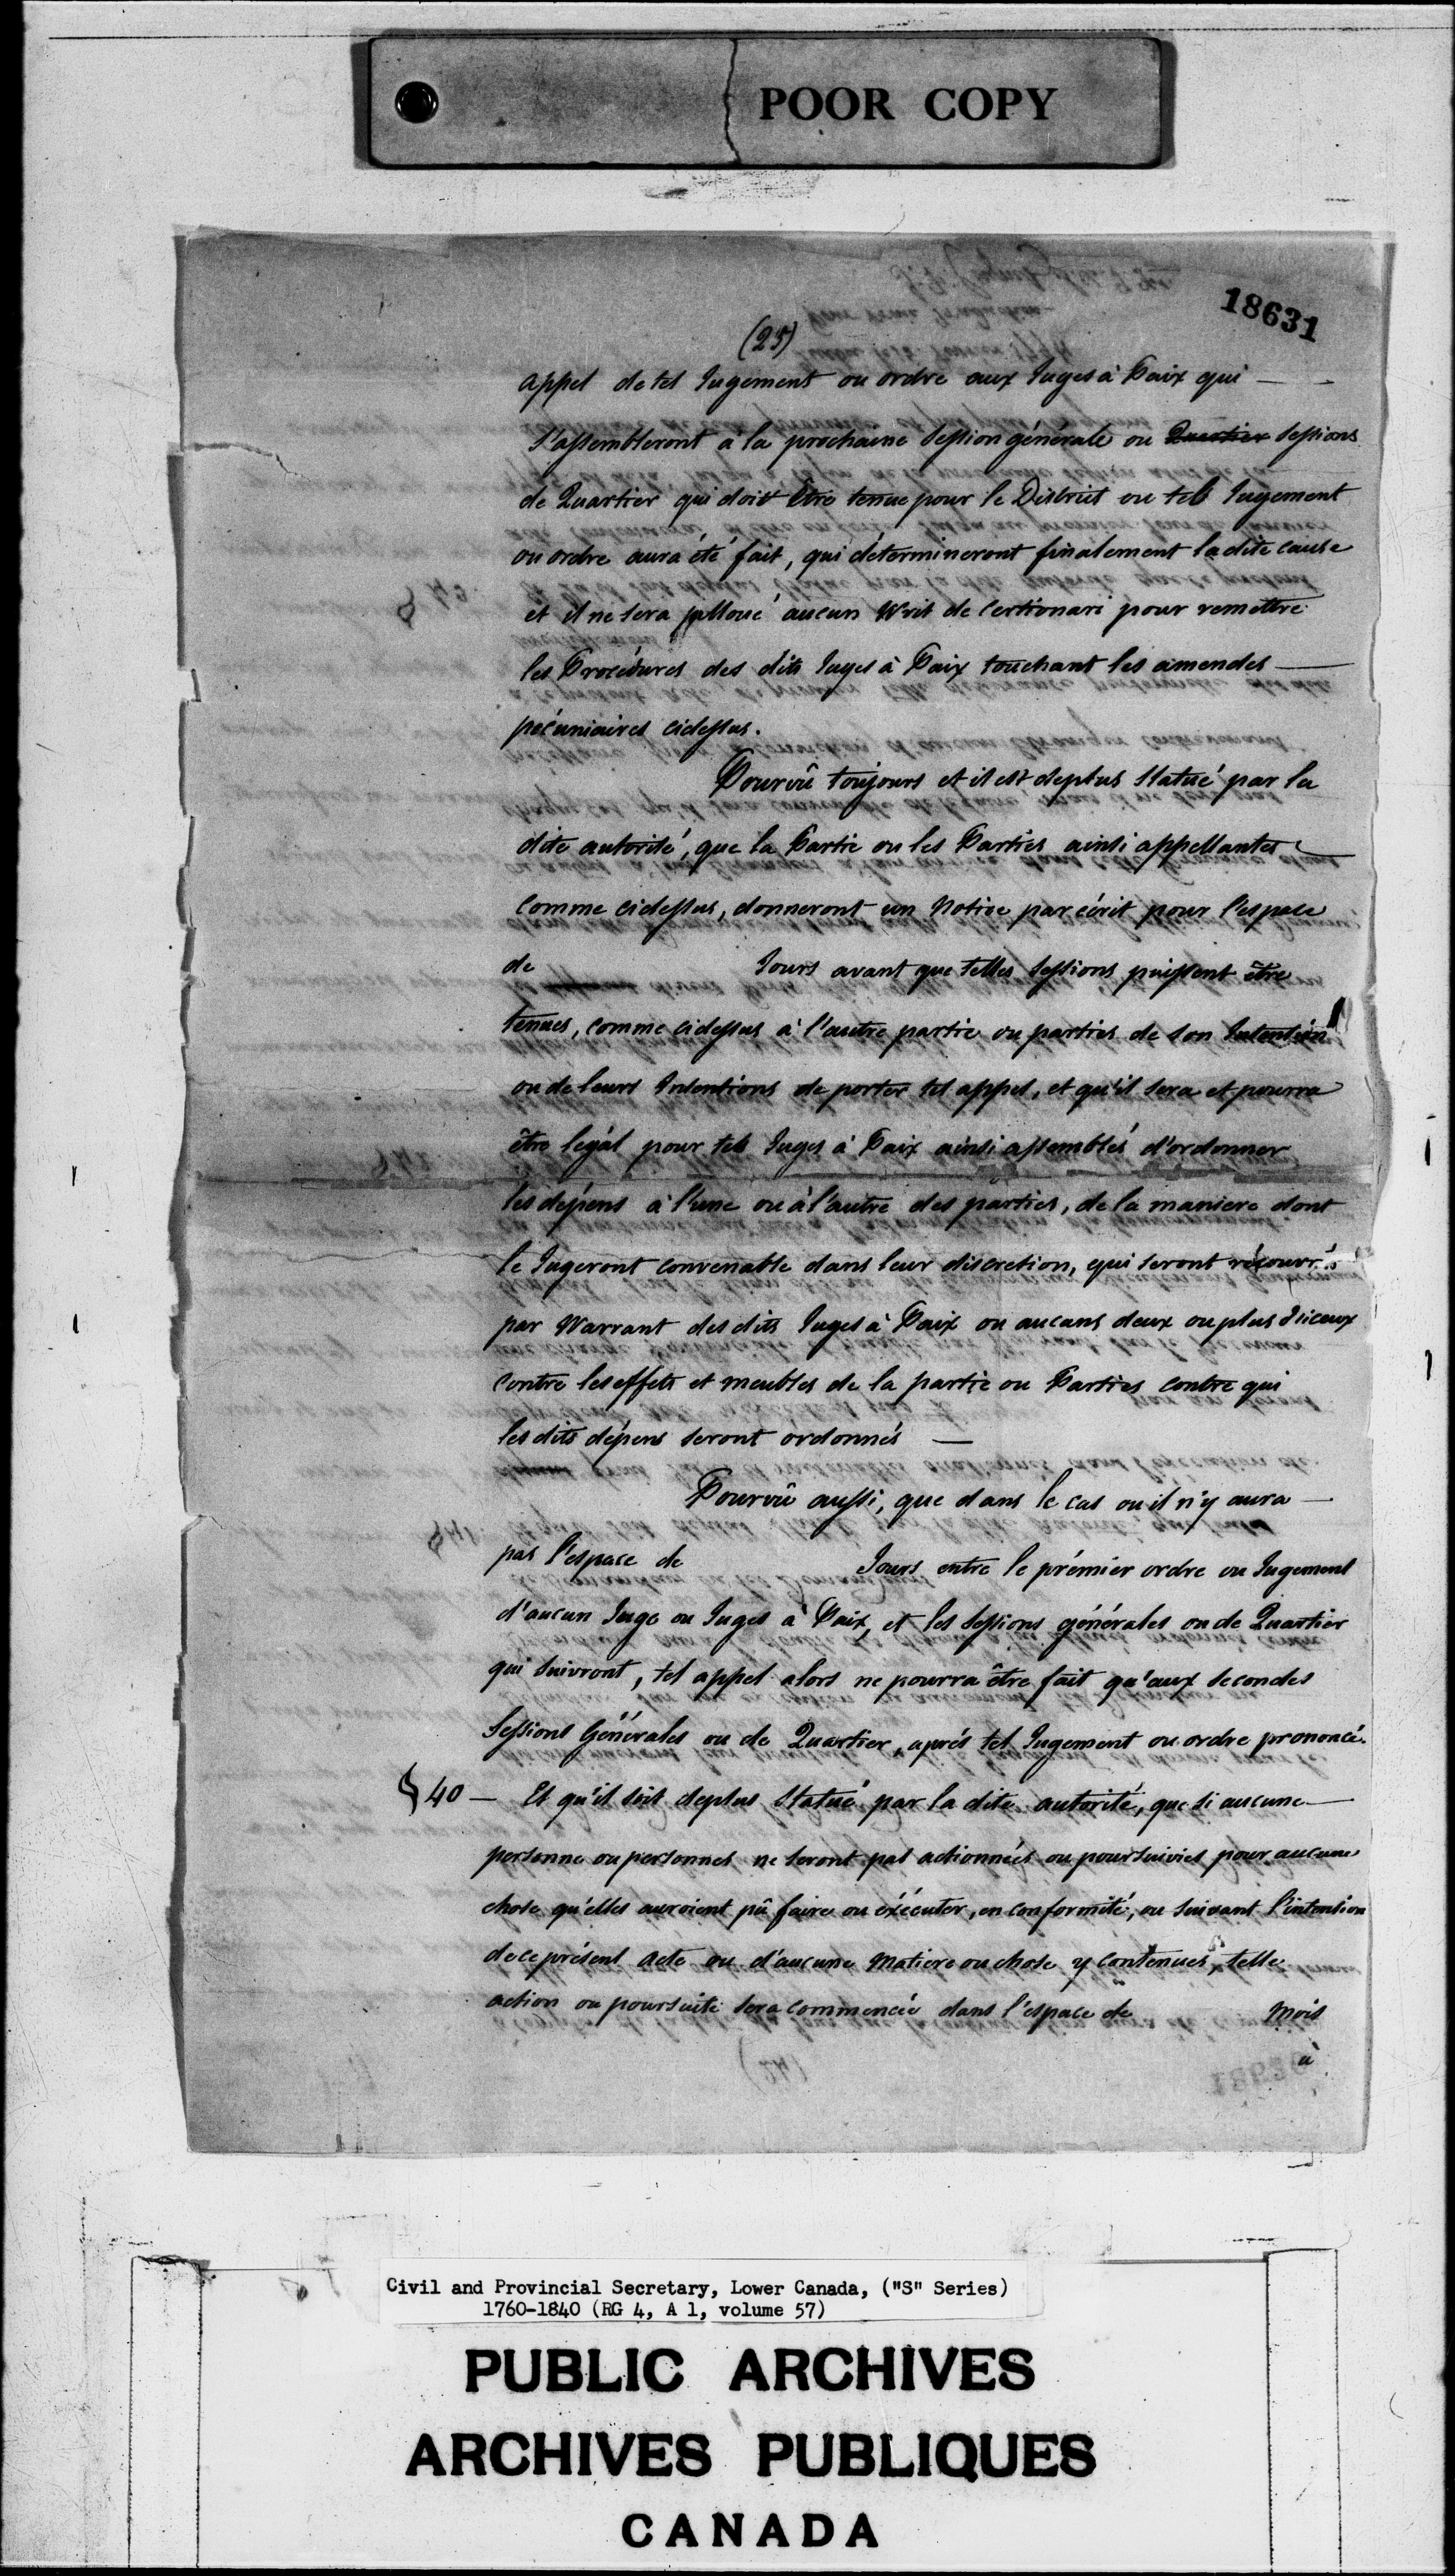 POOR COPY
18631
(25)
appel de tel Jugement ou ordre aux Juges à Paix qui —
s'assembleront à la prochaine Session générale ou Quartier Sessions
de Quartier qui doit être tenue pour le District ou tel Jugement
ou ordre aura été fait, qui détermineront finalement la dite cause
et il ne sera alloué aucun Writ de Certiorari pour remettre
les Procédures des dits Juges à Paix touchant les amendes —
pécuniaires cidessus.
Pourvû toujours et il est deplus Statué par la
dite autorité, que la Partie ou les Parties ainsi appellantes
comme cidessus, donneront un Notice par écrit pour l'espace
de Jours avant que telles Sessions puissent être
tenues, comme cidessus à l'autre partie ou parties de son Intention
ou de leurs Intentions de porter tel appel, et qu'il sera et pourra
être legal pour tels Juges à Paix ainsi assemblés d'ordonner
les dépens à l'une ou à l'autre des parties, de la maniere dont
le Jugeront convenable dans leur discretion, qui seront récouvrés
par Warrant des dits Juges à Paix ou aucuns deux ou plus d'iceux
contre les effets et meubles de la partie ou Parties contre qui
les dits dépens seront ordonnés —
Pourvû aussi, que dans le cas ou il n'y aura —
pas l'espace de Jours entre le prémier ordre ou Jugement
d'aucun Juge ou Juges à Paix, et les Sessions générales ou de Quartier
qui suivront, tel appel alors ne pourra être fait qu'aux secondes
Sessions Générales ou de Quartier, aprés tel Jugement ou ordre prononcé.
§ 40 — Et qu'il soit deplus Statué par la dite autorité, que si aucune —
personne ou personnes ne seront pas actionnées ou poursuivies pour aucune
chose qu'elles auroient pû faire ou éxécuter, en conformité, ou suivant l'intention
de ce présent Acte ou d'aucune Matiere ou chose y contenues, telle
action ou poursuite sera commencée dans l'espace de Mois
à
Civil and Provincial Secretary, Lower Canada, ("S" Series)
1760-1840 (RG 4, A 1, volume 57)
PUBLIC ARCHIVES
ARCHIVES PUBLIQUES
CANADA